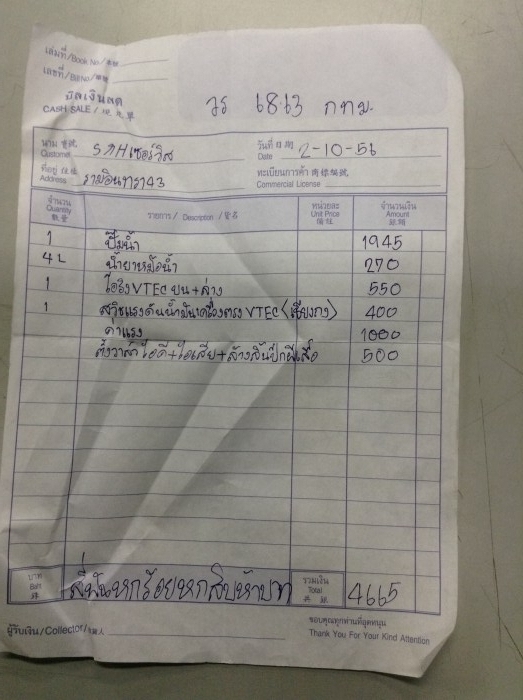 เล่มที่/Book No/
เลขที่/Bill No/
บิลเงินสด
CASH SALE /
วร 6863 กทม.
นาม Customer S.P.H เซอร์วิส
วันที่ Date 2-10-56
ที่อยู่ Address รามอินทรา43
ทะเบียนการค้า Commercial License
จำนวน Quantity 數量 รายการ / Description / 貨名 หน่วยละ Unit Price จำนวนเงิน Amount
1 ปั๊มน้ำ 1945
4L น้ำยาหม้อน้ำ 270
1 โอริง VTEC บน+ล่าง 550
1 สวิชแรงดันน้ำมันเครื่องตรง VTEC (เซียงกง) 400
ค่าแรง 1000
ตั้งวาล์ว ไอดี+ไอเสีย+ล้างลิ้นปีกผีเสื้อ 500
บาท Baht สี่พันหกร้อยหกสิบห้าบาท รวมเงิน Total 4665
ผู้รับเงิน/Collector/
ขอบคุณทุกท่านที่อุดหนุน
Thank You For Your Kind Attention